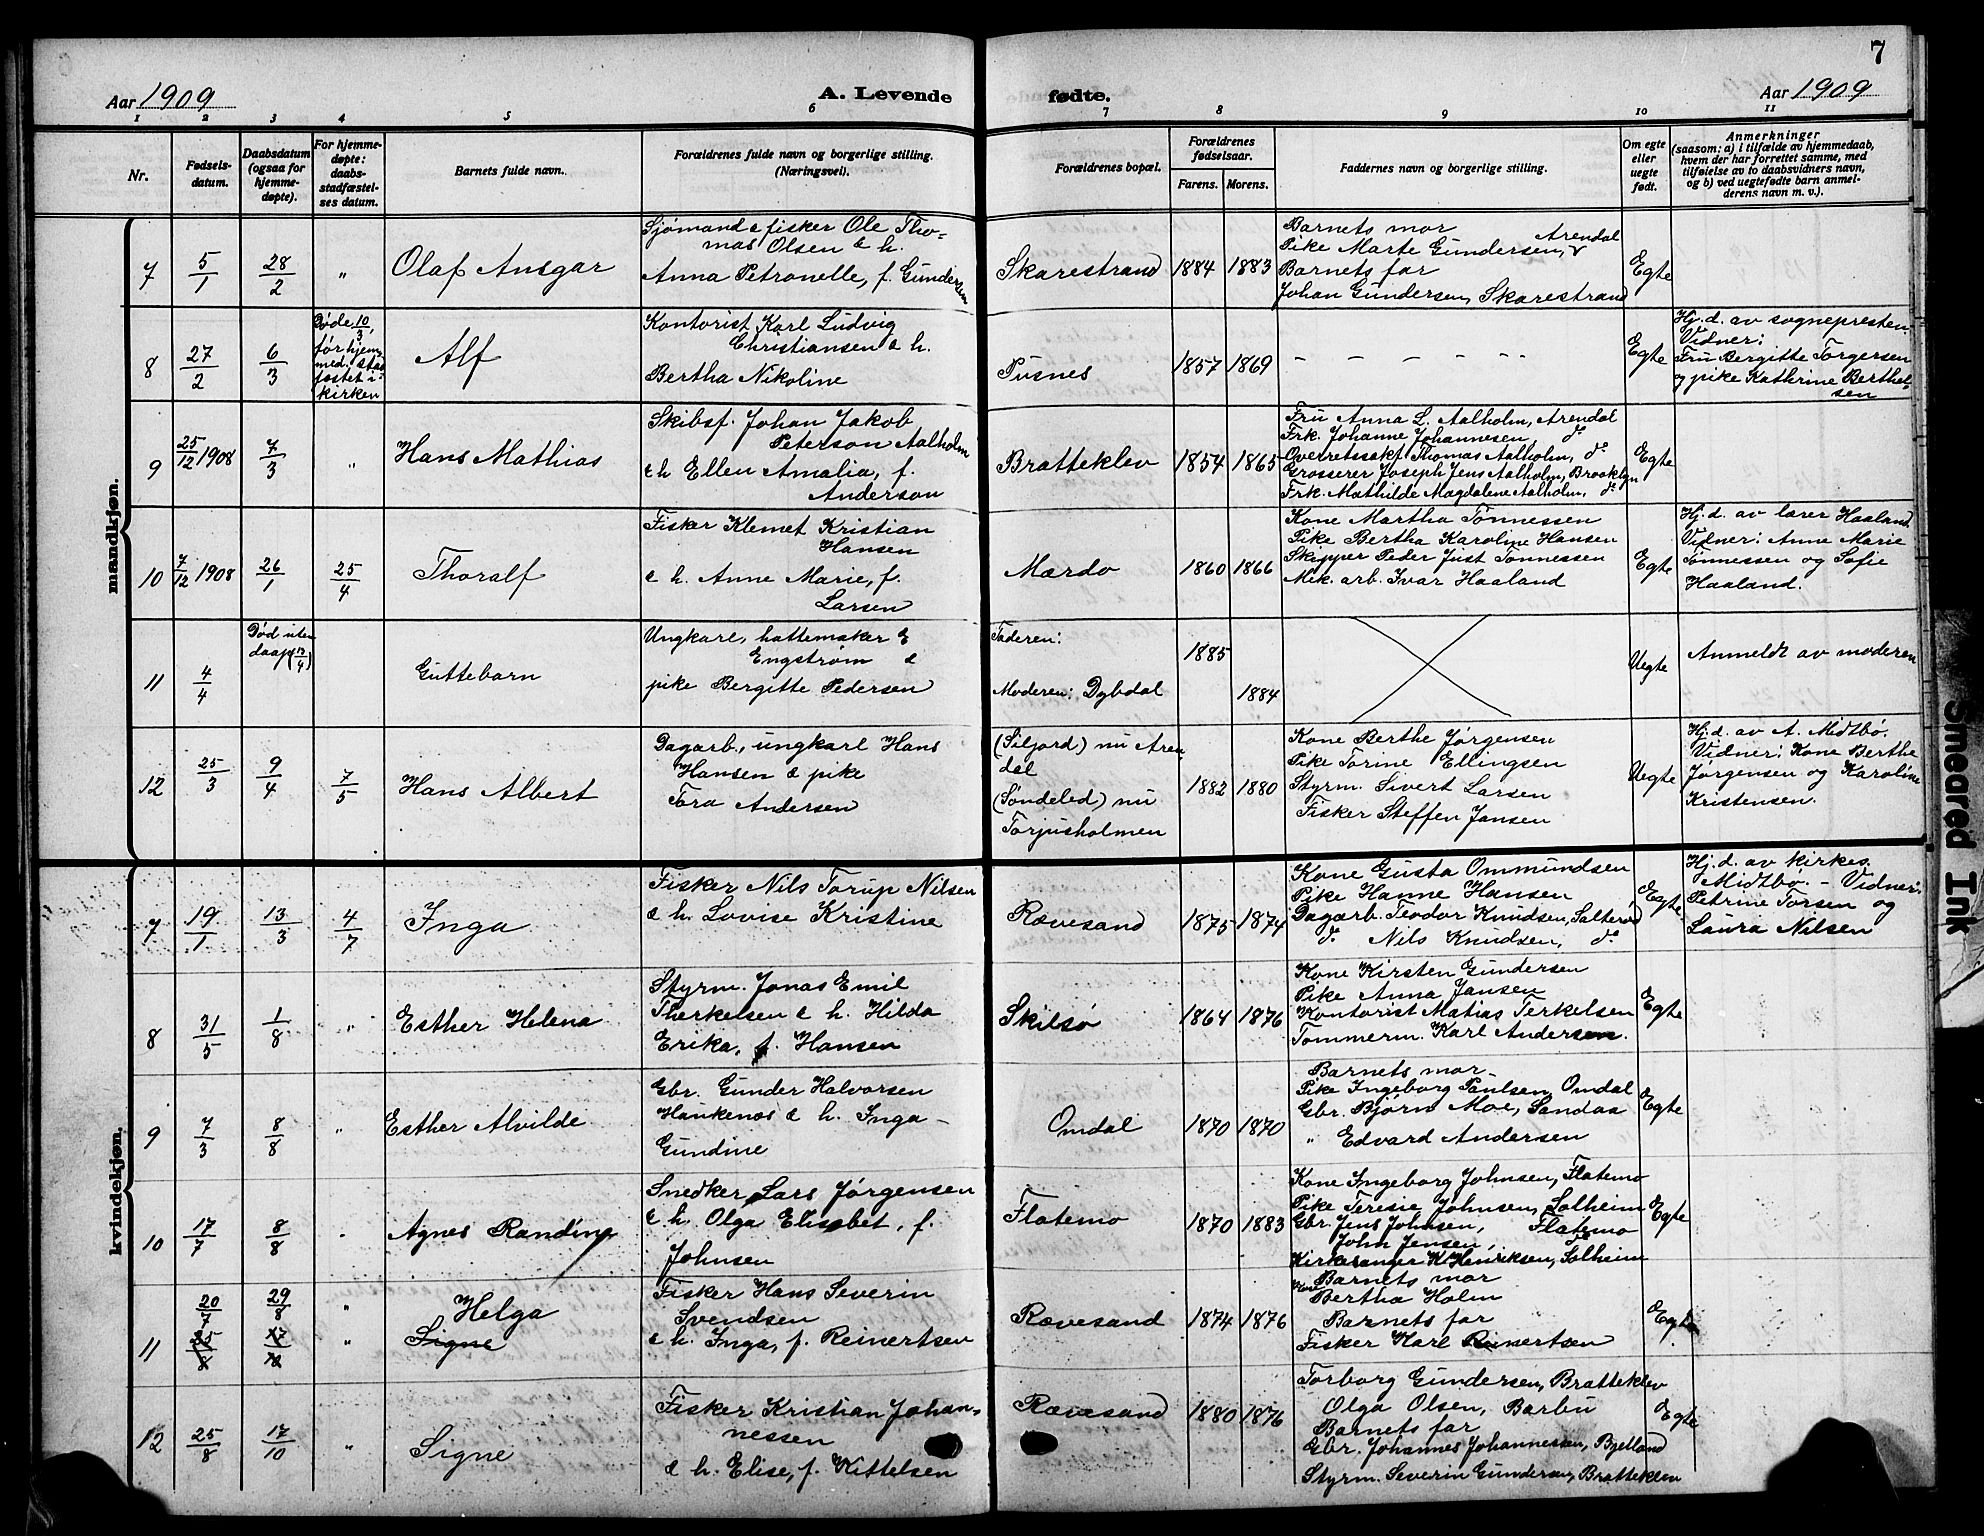 7
Aar 1909
A. Levende fødte.
Aar 1909
1 2 3 4 5 6 7 8 9 10 11
Nr.
Fødsels-
datum.
Daabsdatum
(ogsaa for
hjemme-
døpte).
For hjemme-
døpte:
daabs-
stadfæstel-
ses datum.
Barnets fulde navn.
Forældrenes fulde navn og borgerlige stilling.
(Næringsvei).
Forældrenes bopæl.
Forældrenes
fødselsaar.
Farens. Morens.
Faddernes navn og borgerlige stilling.
Om egte
eller
uegte
født.
Anmerkninger
(saasom: a) i tilfælde av hjemmedaab,
hvem der har forrettet samme, med
tilføielse av to daabsvidners navn,
og b) ved uegtefødte barn anmel-
derens navn m. v.).
mandkjøn.
7
5/1
28/2
"
Olaf Ansgar
Sjømand & fisker Ole Tho=
mas Olsen & h.
Anna Petronelle, f. Gundersen
Skarestrand
1884
1883
Barnets mor
Pike Marte Gundersen, Arendal
Barnets far
Johan Gundersen, Skarestrand
Egte
8
27/2
6/3
Døde 10/3,
før hjem-
med. stad
fæstet i
kirken
Alf
Kontorist Karl Ludvig
Christiansen & h.
Bertha Nikoline
Pusnes
1857
1869
– – – – – –
Egte
Hj. d. av sognepresten.
Vidner:
Fru Bergitte Torgersen
og pike Kathrine Berthel-
sen
9
25/12 1908
7/3
"
Hans Mathias
Skibsf. Johan Jakob
Peterson Aalholm
& h Ellen Amalia, f.
Anderson
Bratteklev
1854
1865
Fru Anna L. Aalholm, Arendal
Frk. Johanne Johannesen, do
Overretssakf. Thomas Aalholm, do
Grosserer Joseph Jens Aalholm, Brooklyn
Frk. Mathilde Magdalene Aalholm, do
Egte
10
7/12 1908
26/1
25/4
Thoralf
Fisker Klemet Kristian
Hansen
& h. Anne Marie, f.
Larsen
Mærdø
1860
1866
Kone Martha Tønnessen
Pike Bertha Karoline Hansen
Skipper Peder Just Tønnessen
Mek. arb. Ivar Haaland
Egte
Hj. d. av lærer Haaland
Vidner: Anne Marie
Tønnessen og Sofie
Haaland.
11
4/4
Død uten
daap (13/4)
Guttebarn
Ungkarl, hattemaker E
Engstrøm &
pike Bergitte Pedersen
Faderen:
Moderen: Dybdal
1885
1884
Uegte
Anmeldt av moderen
12
25/3
9/4
7/5
Hans Albert
Dagarb., ungkarl Hans
Hansen & pike
Tora Andersen
(Siljord) nu Aren
dal
(Søndeled) nu
Torjusholmen
1882
1880
Kone Berthe Jørgensen
Pike Torine Ellingsen
Styrm. Sivert Larsen
Fisker Steffen Jansen
Uegte
Hj. d. av A. Midtbø.
Vidner: Kone Berthe
Jørgensen og Karoline
Kristensen.
kvindekjøn.
7
19/1
13/3
4/7
Inga
Fisker Nils Torup Nilsen
& h. Lovise Kristine
Rævesand
1875
1874
Kone Gusta Ommundsen
Pike Hanne Hansen
Dagarb. Teodor Knudsen, Salterød
do Nils Knudsen, do
Egte
Hj. d. av kirkes.
Midtbø. – Vidner:
Petrine Torsen og
Laura Nilsen
8
31/5
1/8
"
Esther Helena
Styrm. Jonas Emil
Therkelsen & h. Hilda
Erika, f. Hansen
Skilsø
1864
1876
Kone Kirsten Gundersen
Pike Anna Jansen
Kontorist Matias Terkelsen
Tømmerm. Karl Andersen.
Egte
9
7/3
8/8
"
Esther Alvilde
Gbr. Gunder Halvorsen
Haukenes & h. Inga
Gundine
Omdal
1870
1870
Barnets mor
Pike Ingeborg Paulsen, Omdal
Gbr. Bjørn Moe, Sandaa
" Edvard Andersen
Egte
10
17/7
8/8
"
Agnes Randine
Snedker Lars Jørgensen
& h. Olga Elisabet, f.
Johnsen
Flatemo
1870
1883
Kone Ingeborg Johnsen, Flatemo
Pike Teresie Johnsen, Solheim
Gbr. Jens Johnsen, Flatemo
John Jensen, do
Kirkesanger K. Henriksen, Solheim
Egte
11
20/7
29/8
"
Helga
Signe
Fisker Hans Severin
Svendsen
& h. Inga, f. Reinertsen
Rævesand
1874
1876
Barnets mor
Kone Bertha Holm
Barnets far
Fisker Karl Reinertsen
Egte
12
25/8
17/10
"
Signe
Fisker Kristian Johan-
nessen
& h. Elise, f. Kittelsen
Rævesand
1880
1876
Torborg Gundersen, Bratteklev
Olga Olsen, Barbu
Barnets far
Gbr. Johannes Johannessen, Bjelland
Styrm. Severin Gundersen, Bratteklev
Egte
Smeared Ink